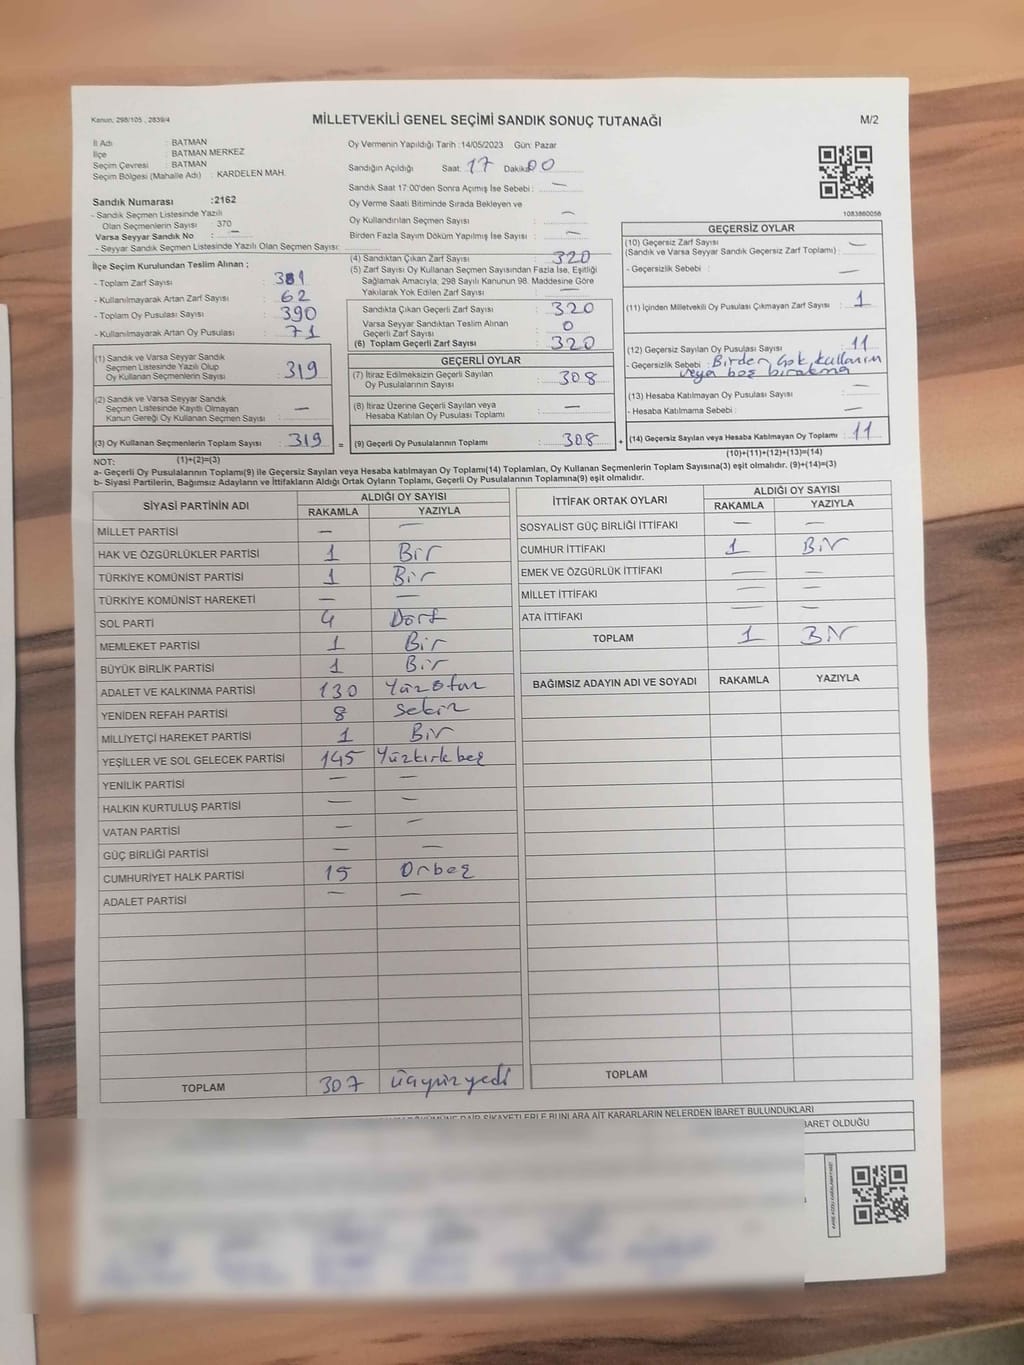 Kanun: 298/105 , 2839/4
MİLLETVEKİLİ GENEL SEÇİMİ SANDIK SONUÇ TUTANAĞI
M/2
İl Adı : BATMAN
İlçe : BATMAN MERKEZ
Seçim Çevresi : BATMAN
Seçim Bölgesi (Mahalle Adı) : KARDELEN MAH.
Sandık Numarası :2162
- Sandık Seçmen Listesinde Yazılı
Olan Seçmenlerin Sayısı 370
Varsa Seyyar Sandık No : —
- Seyyar Sandık Seçmen Listesinde Yazılı Olan Seçmen Sayısı:
Oy Vermenin Yapıldığı Tarih :14/05/2023 Gün: Pazar
Sandığın Açıldığı Saat: 17 Dakika: 00
Sandık Saat 17.00'den Sonra Açımış İse Sebebi : —
Oy Verme Saati Bitiminde Sırada Bekleyen ve
Oy Kullandırılan Seçmen Sayısı : —
Birden Fazla Sayım Döküm Yapılmış İse Sayısı : —
1083860056
İlçe Seçim Kurulundan Teslim Alınan ;
- Toplam Zarf Sayısı : 381
- Kullanılmayarak Artan Zarf Sayısı : 62
- Toplam Oy Pusulası Sayısı : 390
- Kullanılmayarak Artan Oy Pusulası : 71
(1) Sandık ve Varsa Seyyar Sandık
Seçmen Listesinde Yazılı Olup
Oy Kullanan Seçmenlerin Sayısı : 319
(2) Sandık ve Varsa Seyyar Sandık
Seçmen Listesinde Kayıtlı Olmayan
Kanun Gereği Oy Kullanan Seçmen Sayısı : —
(3) Oy Kullanan Seçmenlerin Toplam Sayısı : 319 =
(4) Sandıktan Çıkan Zarf Sayısı : 320
(5) Zarf Sayısı Oy Kullanan Seçmen Sayısından Fazla İse, Eşitliği
Sağlamak Amacıyla, 298 Sayılı Kanunun 98. Maddesine Göre
Yakılarak Yok Edilen Zarf Sayısı : —
Sandıkta Çıkan Geçerli Zarf Sayısı : 320
Varsa Seyyar Sandıktan Teslim Alınan
Geçerli Zarf Sayısı : 0
(6) Toplam Geçerli Zarf Sayısı : 320
GEÇERLİ OYLAR
(7) İtiraz Edilmeksizin Geçerli Sayılan
Oy Pusulalarının Sayısı : 308
(8) İtiraz Üzerine Geçerli Sayılan veya
Hesaba Katılan Oy Pusulası Toplamı : —
(9) Geçerli Oy Pusulalarının Toplamı : 308 +
GEÇERSİZ OYLAR
(10) Geçersiz Zarf Sayısı
(Sandık ve Varsa Seyyar Sandık Geçersiz Zarf Toplamı) : —
- Geçersizlik Sebebi : —
(11) İçinden Milletvekili Oy Pusulası Çıkmayan Zarf Sayısı : 1
(12) Geçersiz Sayılan Oy Pusulası Sayısı : 11
- Geçersizlik Sebebi : Birden çok kullanım
veya boş bırakma
(13) Hesaba Katılmayan Oy Pusulası Sayısı : —
- Hesaba Katılmama Sebebi : —
(14) Geçersiz Sayılan veya Hesaba Katılmayan Oy Toplamı : 11
NOT: (1)+(2)=(3)
(10)+(11)+(12)+(13)=(14)
a- Geçerli Oy Pusulalarının Toplamı(9) ile Geçersiz Sayılan veya Hesaba katılmayan Oy Toplamı(14) Toplamları, Oy Kullanan Seçmenlerin Toplam Sayısına(3) eşit olmalıdır. (9)+(14)=(3)
b- Siyasi Partilerin, Bağımsız Adayların ve İttifakların Aldığı Ortak Oyların Toplamı, Geçerli Oy Pusulalarının Toplamına(9) eşit olmalıdır.
SİYASİ PARTİNİN ADI ALDIĞI OY SAYISI
RAKAMLA YAZIYLA
MİLLET PARTİSİ — —
HAK VE ÖZGÜRLÜKLER PARTİSİ 1 Bir
TÜRKİYE KOMÜNİST PARTİSİ 1 Bir
TÜRKİYE KOMÜNİST HAREKETİ — —
SOL PARTİ 4 Dört
MEMLEKET PARTİSİ 1 Bir
BÜYÜK BİRLİK PARTİSİ 1 Bir
ADALET VE KALKINMA PARTİSİ 130 Yüzotuz
YENİDEN REFAH PARTİSİ 8 Sekiz
MİLLİYETÇİ HAREKET PARTİSİ 1 Bir
YEŞİLLER VE SOL GELECEK PARTİSİ 145 Yüzkırkbeş
YENİLİK PARTİSİ — —
HALKIN KURTULUŞ PARTİSİ — —
VATAN PARTİSİ — —
GÜÇ BİRLİĞİ PARTİSİ — —
CUMHURİYET HALK PARTİSİ 15 Onbeş
ADALET PARTİSİ — —
TOPLAM 307 üçyüzyedi
İTTİFAK ORTAK OYLARI ALDIĞI OY SAYISI
RAKAMLA YAZIYLA
SOSYALİST GÜÇ BİRLİĞİ İTTİFAKI — —
CUMHUR İTTİFAKI 1 Bir
EMEK VE ÖZGÜRLÜK İTTİFAKI — —
MİLLET İTTİFAKI — —
ATA İTTİFAKI — —
TOPLAM 1 Bir
BAĞIMSIZ ADAYIN ADI VE SOYADI RAKAMLA YAZIYLA
TOPLAM
DAİR ŞİKAYETLERLE BUNLARA AİT KARARLARIN NELERDEN İBARET BULUNDUKLARI
İBARET OLDUĞU